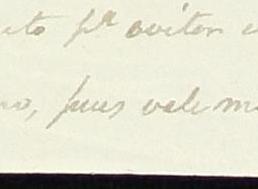 uto pª evitar e
no, pues vale m